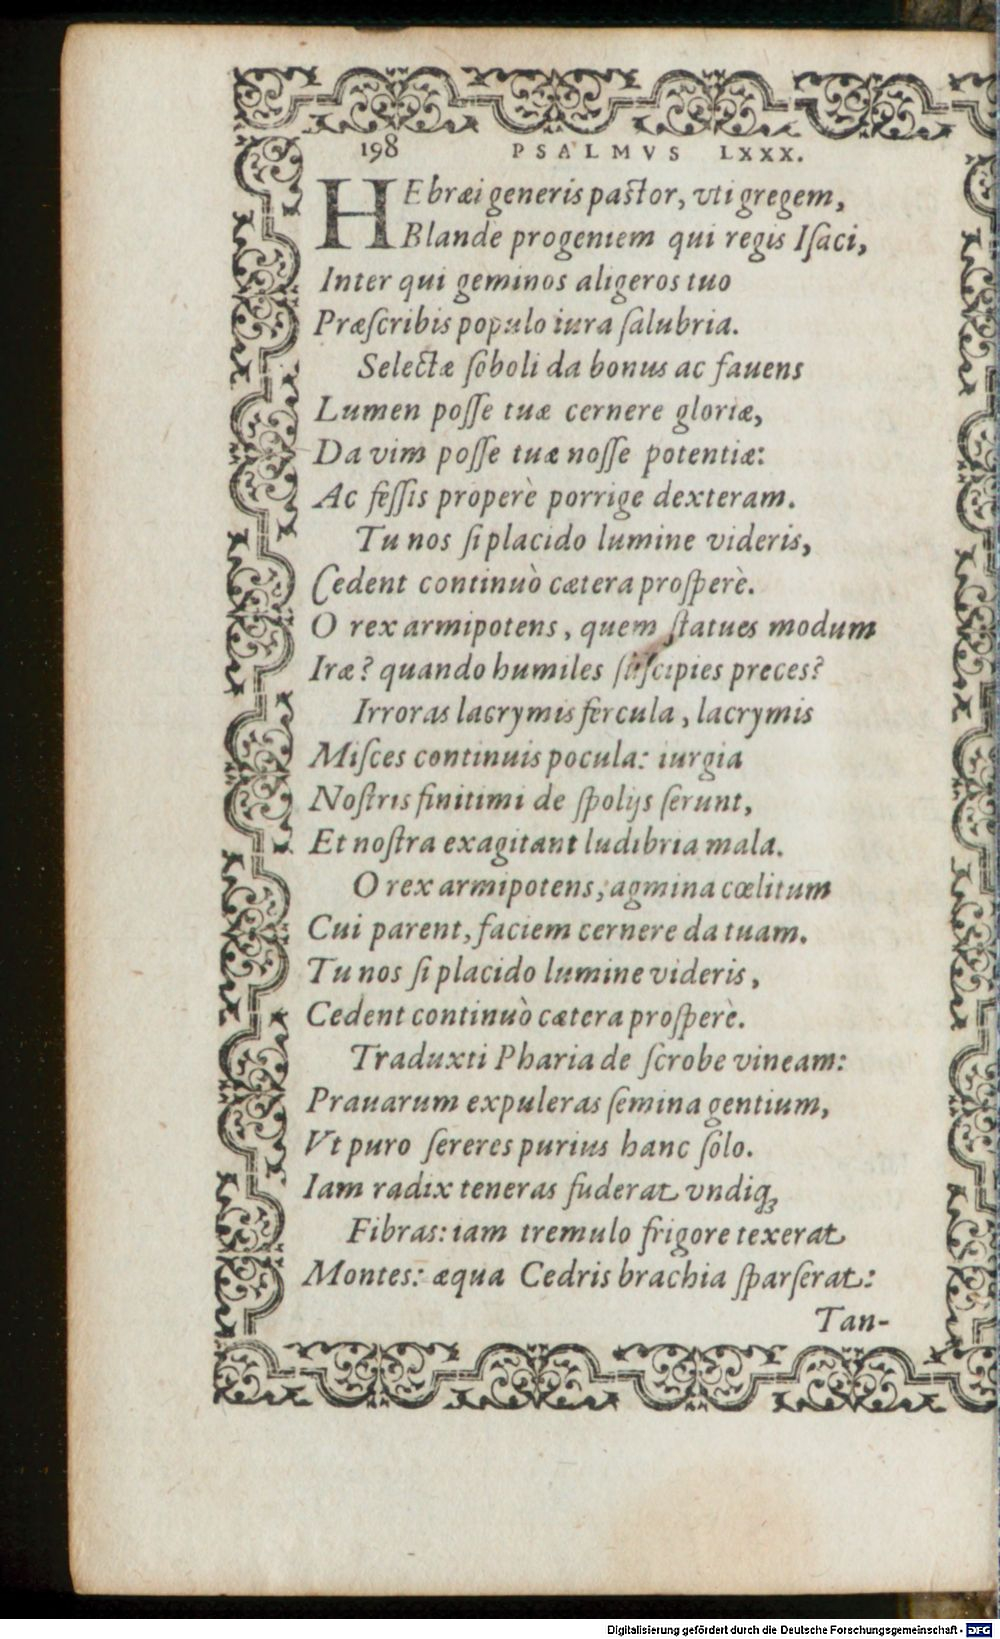 198 PSALMVS LXXX.
HEbræi generis pastor, vti gregem,
Blandè progeniem qui regis Isaci,
Inter qui geminos aligeros tuo
Præscribis populo iura salubria.
Selectæ soboli da bonus ac fauens
Lumen posse tuæ cernere gloriæ,
Da vim posse tuæ nosse potentiæ:
Ac fessis properè porrige dexteram.
Tu nos si placido lumine videris,
Cedent continuò cætera prosperè.
O rex armipotens, quem statues modum
Iræ? quando humiles suscipies preces?
Irroras lacrymis fercula, lacrymis
Misces continuis pocula: iurgia
Nostris finitimi de spolijs serunt,
Et nostra exagitant ludibria mala.
O rex armipotens, agmina cœlitum
Cui parent, faciem cernere da tuam.
Tu nos si placido lumine videris,
Cedent continuò cætera prosperè.
Traduxti Pharia de scrobe vineam:
Prauarum expuleras semina gentium,
Vt puro sereres purius hanc solo.
Iam radix teneras fuderat vndiq;
Fibras: iam tremulo frigore texerat
Montes: æqua Cedris brachia sparserat:
Tan-
Digitalisierung gefördert durch die Deutsche Forschungsgemeinschaft - DFG